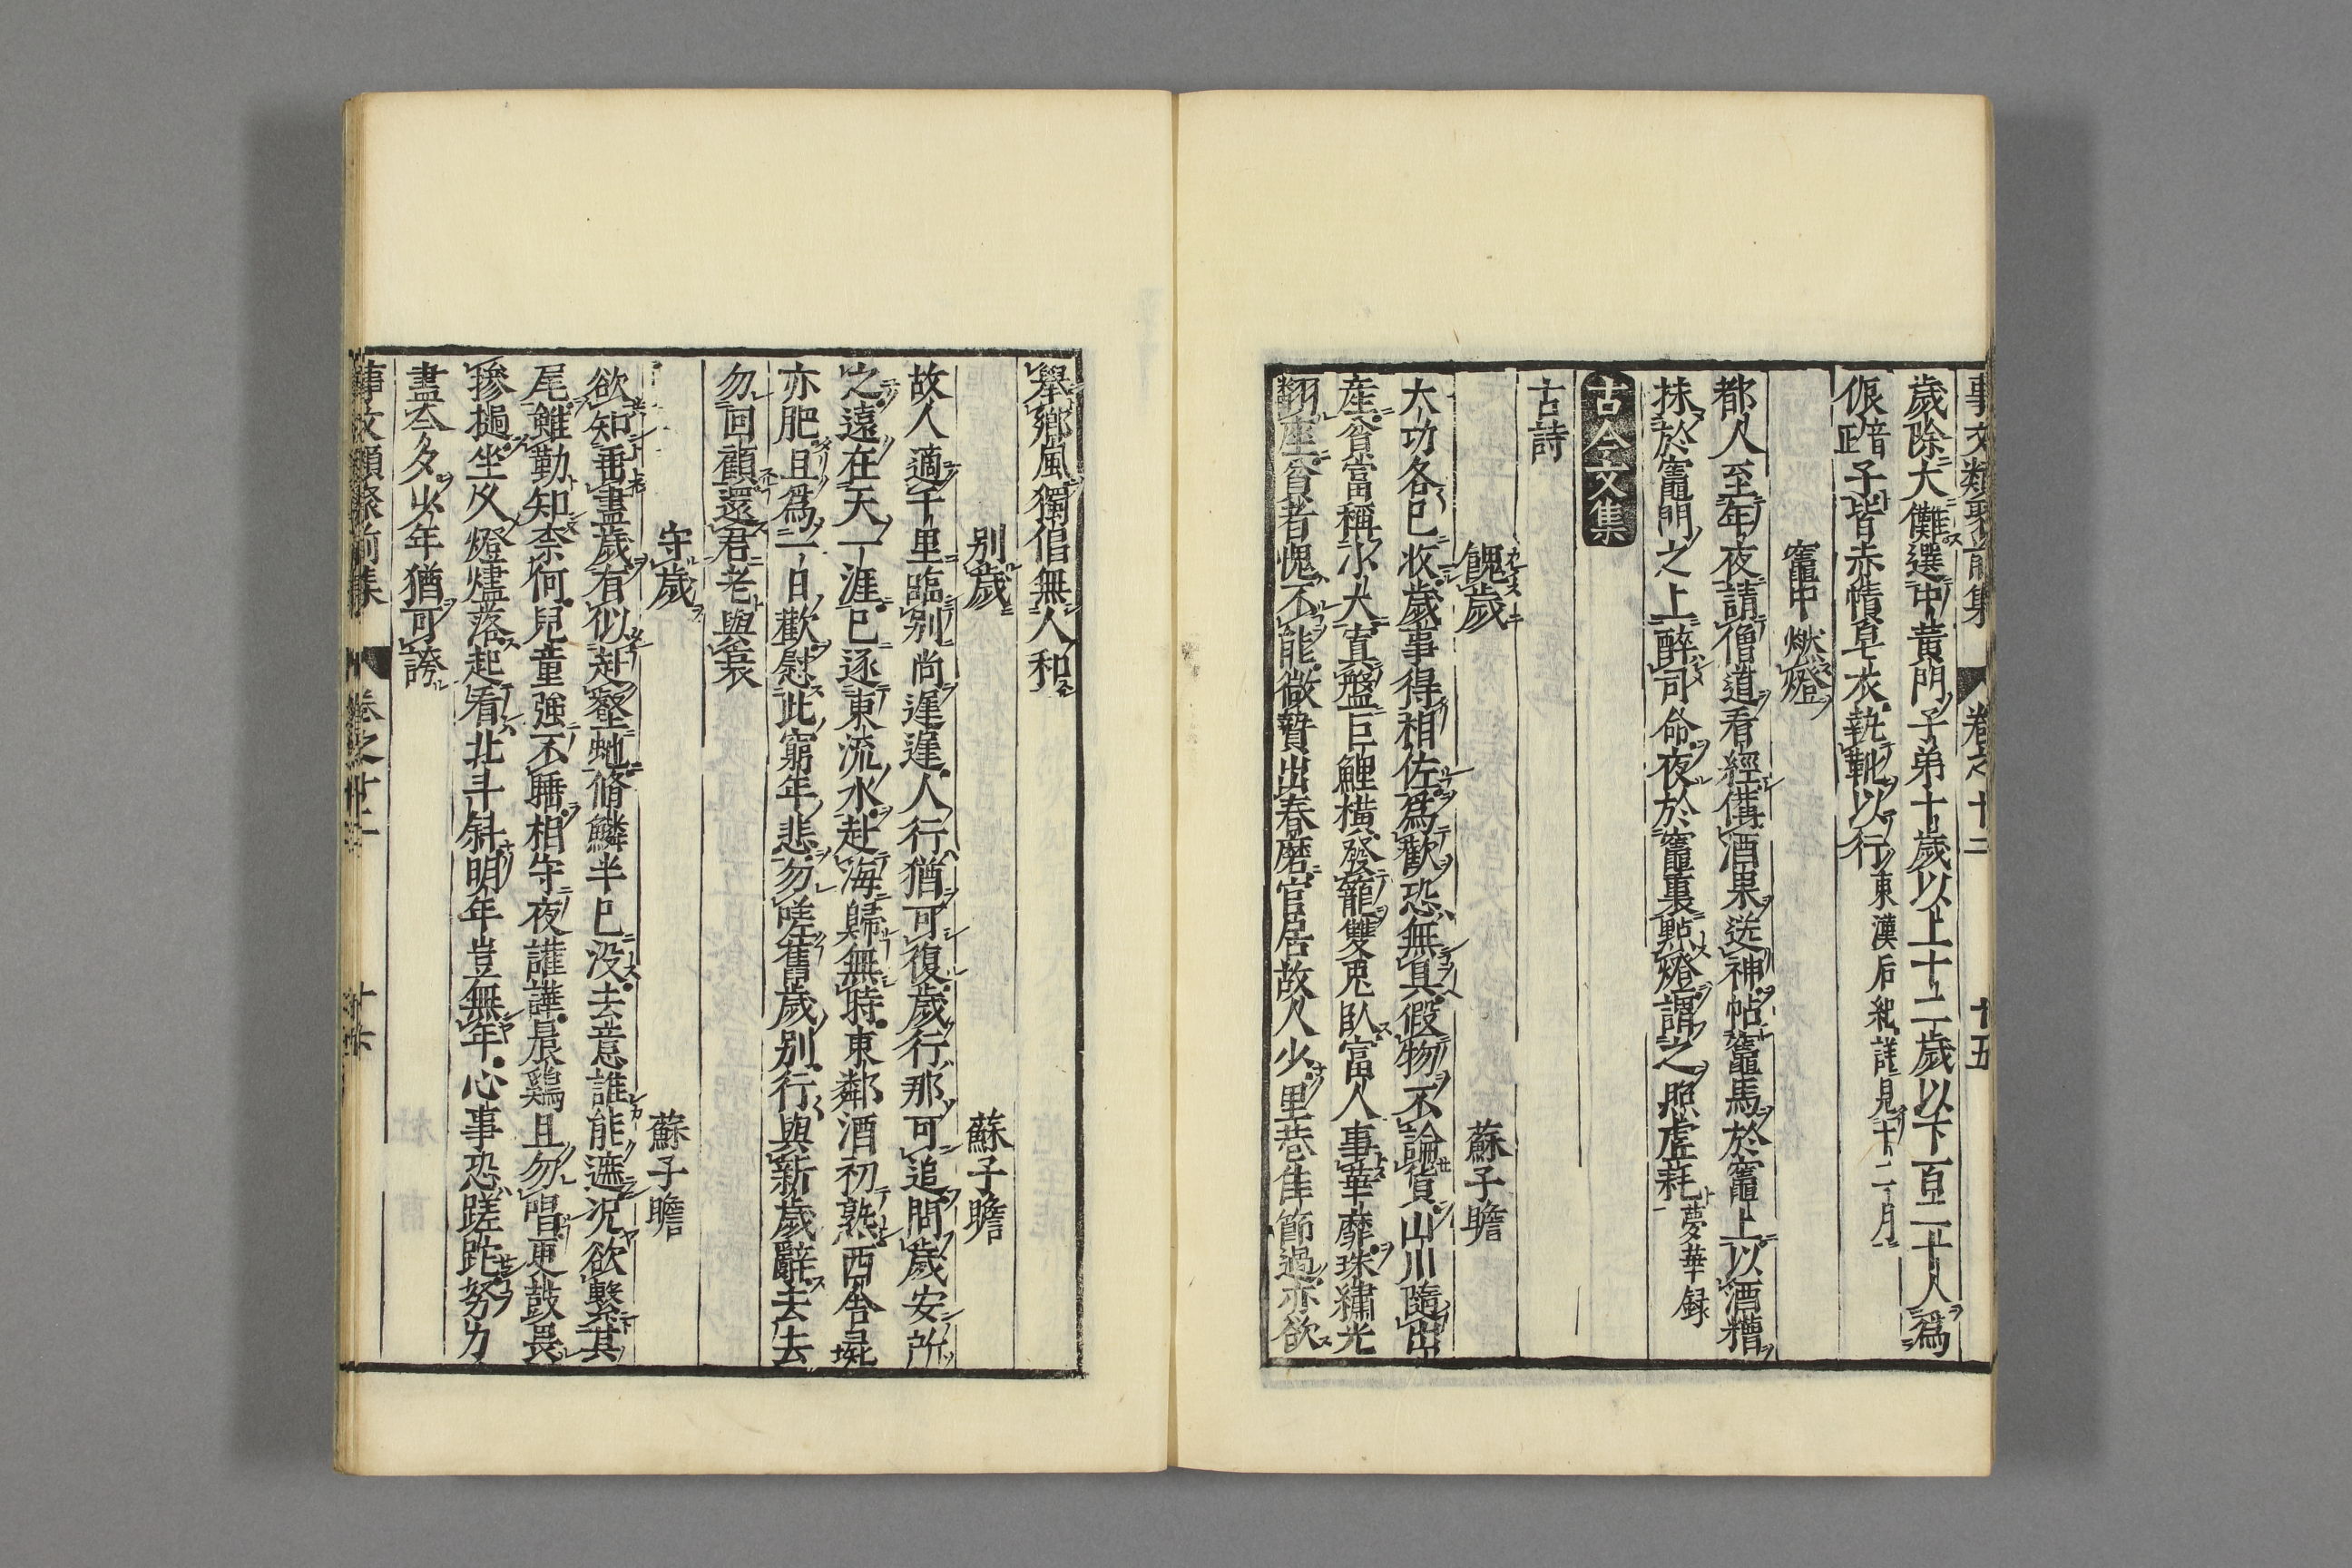 事文類聚前集 卷之十二 十五
歲除大儺選中黃門子弟十歲以上十二歲以下百二十人爲
侲音正子皆赤幘皁衣執鞉以行東漢后紀詳見十二月
竈中燃燈
都人至年夜請僧道看經備酒果送神帖竈馬於竈上以酒糟
抹於竈門之上醉司命夜於竈裏點燈謂之照虚耗夢華録
古今文集
古詩
餽歲 蘇子瞻
大功各已收歲事得相佐爲歡恐無具假物不論貨山川隨出
産貧富稱小大寘盤巨鯉橫發籠雙兎臥富人事華靡珠繡光
翻座貧者愧不能微贄出春磨官居故人少里巷佳節過亦欲
舉鄉風獨倡無人和
别歲 蘇子瞻
故人適千里臨别尚遲遲人行猶可復歲行那可追問歲安所
之遠在天一涯已逐東流水赴海歸無時東鄰酒初熟西舍彘
亦肥且爲一日歡慰此窮年悲勿嗟舊歲别行與新歲辭去去
勿回顧還君老與衰
守歲 蘇子瞻
欲知垂盡歲有似赴壑虵脩鱗半已没去意誰能遮况欲繫其
尾雖勤知柰何兒童強不睡相守夜讙譁晨鷄且勿唱更鼓畏
摻撾坐久燈燼落起看北斗斜明年豈無年心事恐蹉跎努力
盡今夕少年猶可誇
事文類聚前集 卷之十二